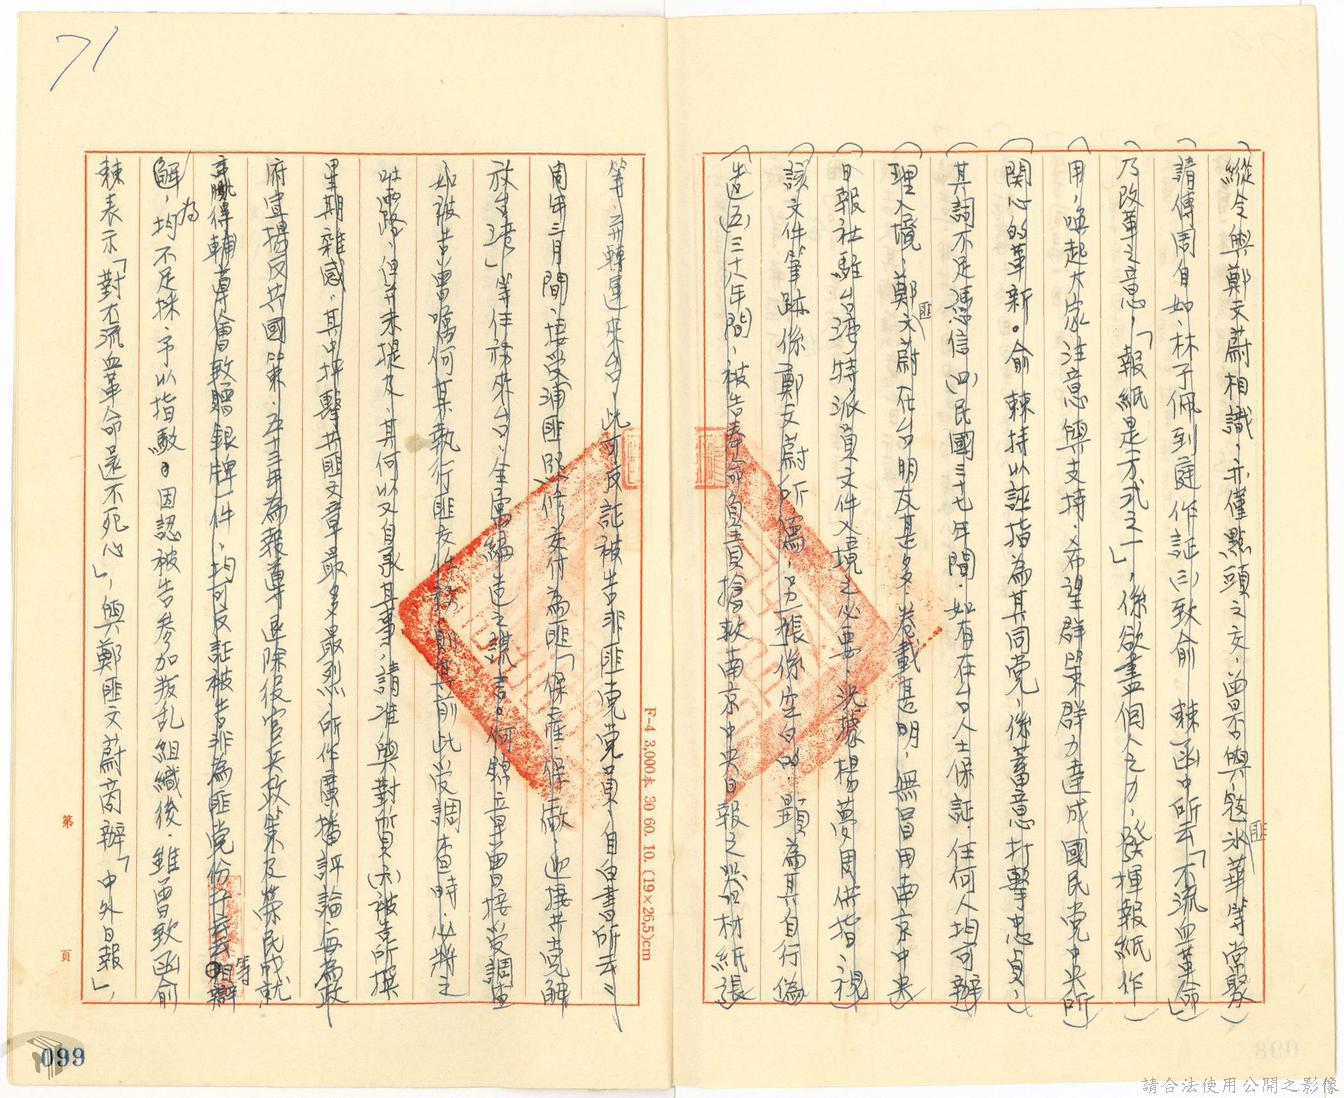 71
縱令與鄭文蔚相識，亦僅點頭之交，曾否與匪題冰華等常聚
請傳周自如、林子佩到庭作証㈢致俞棘函中所云「不流血革命」
乃改革之意，「報紙是方式之一」，係欲盡個人之力，發揮報紙作
用，喚起大家注意與支持，希望群策群力達成國民党中央所
関心的革新。俞棘持以誣指為其同党，係蓄意打擊忠貞，
其詞不足憑信㈣民國三十七年間，如有在台人士保証，任何人均可辦
理入境，鄭匪文蔚在台朋友甚多，卷載甚明，無冒用南京中央
日報社駐台湾特派員文件入境之必要，況據楊夢周併指，視
該文件筆跡係鄭文蔚所僞，另張係空白的，顯為其自行偽
造㈤三十八年間，被告奉命負責搶救南京中央日報之器材紙張
等，并轉運來台，此可反証被告非匪党党員，自白書所云：
周年三月間，接受浦匪熙修交付為匪「保產、保廠、迎接共党解
放台湾」等任務來台，全属編造之謊言。何錦章曾接受調查
如被告曾囑何某執行匪交任務，則其前此受調查時，必將之
吐露，但并未提及，其何以又自承其事，請准與對質㈥被告所撰
星期雜感，其中抨擊共匪文章最多最烈，所作廣播評論，每為政
府宣揚反共國策，五十三年為報導退除役官兵政策及榮民成就
承獲得輔導會致贈銀牌一件，均可反証被告非為匪党份子云云
解，均不足採，予以指駁。因認被告參加叛乱組織後，雖曾致函俞
為
棘表示「對不流血革命還不死心」，與鄭匪文蔚商辦「中外日報」，
F-4 3,000本 50 60. 10. (19×26,5)cm
第
頁
099
請合法使用公開之影像